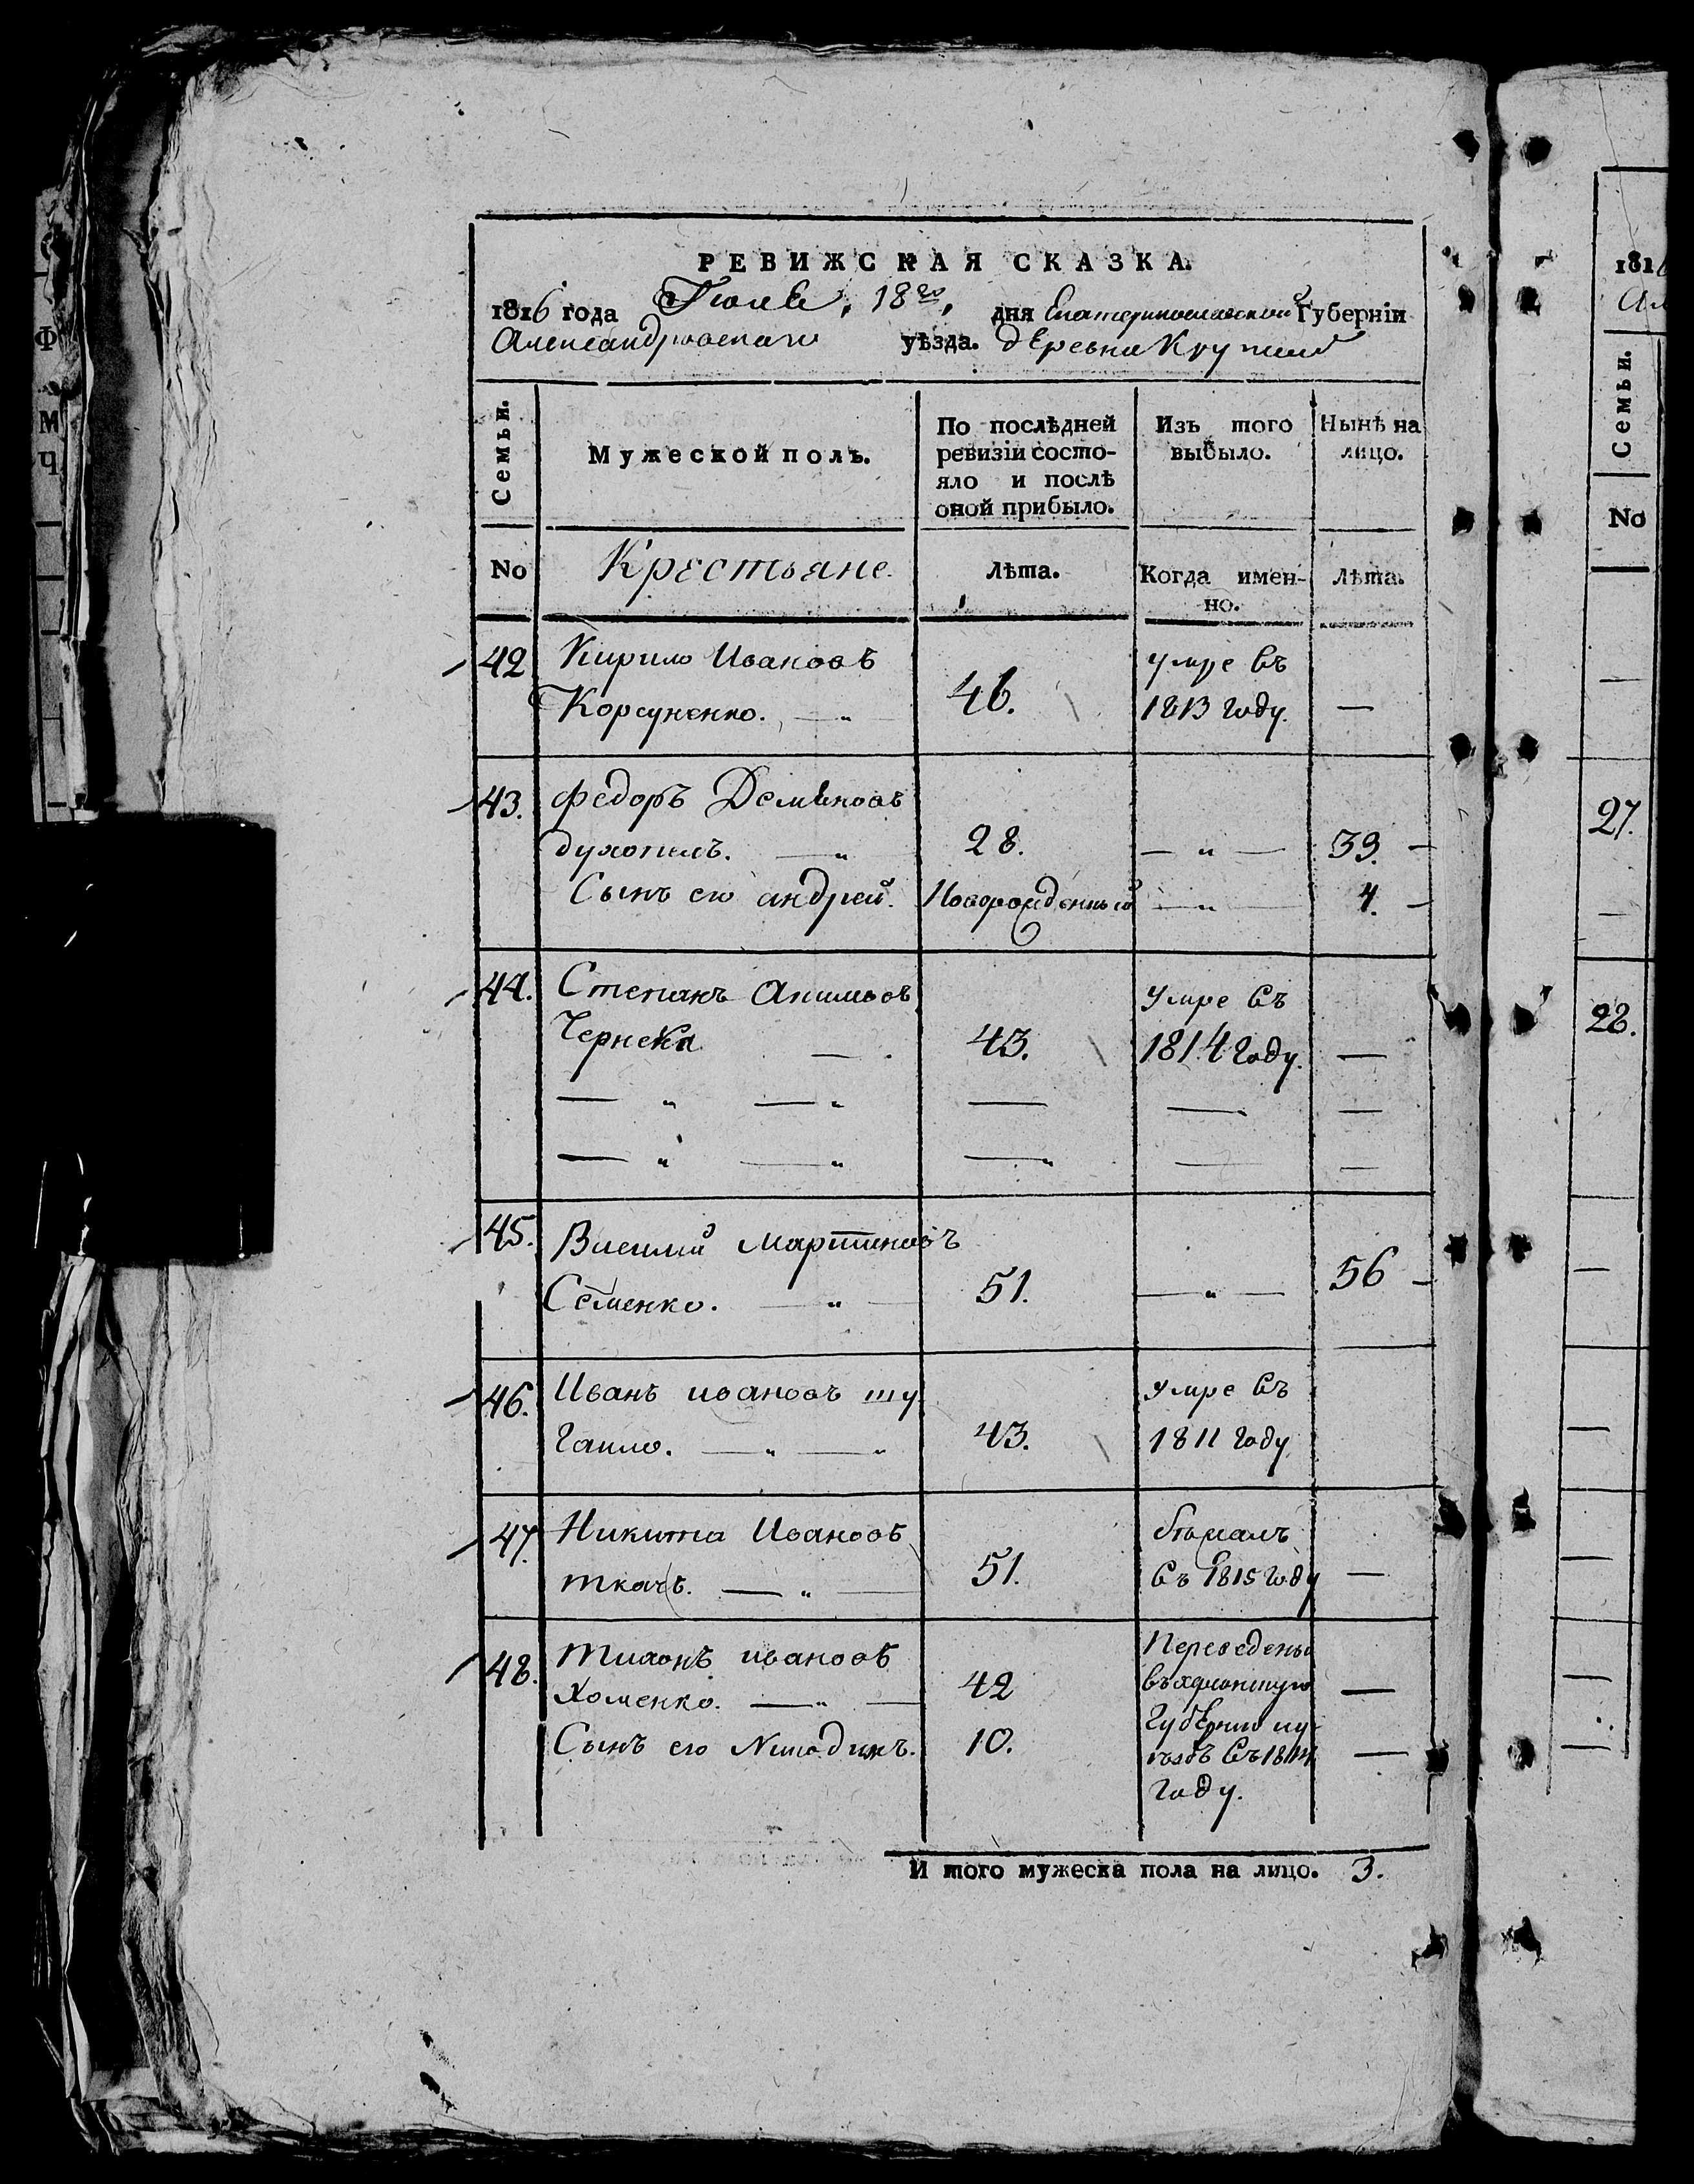 РЕВИЖСКАЯ СКАЗКА.
1816 года Июля, 18го, дня Екатеринославской Губерніи
Александровскаго уѣзда. деревни
Семьи.
Мужеской полъ.
По послѣдней
ревизіи состо-
яло и послѣ
оной прибыло.
Изъ того
выбыло.
Нынѣ на
лицо.
No
Крестьяне.
лѣта.
Когда имен-
но.
лѣта.
42 Кирило Ивановъ умре въ
Корсуненко. — „ 46. 1813 году. —
43. Федоръ Демяновъ
духопелъ. — „ 28. — „ — 39. —
Сынъ его андрей. Новорожденный — „ — 4. —
44. Степанъ Акимовъ умре въ
Чернека — . 43. 1814 году. —
— „ — „ — — —
— „ — „ — „ — —
45. Василий Мартиновъ
Семенко. — „ — 51. — „ — 56 —
46. Иванъ ивановъ шу умре въ
гайло. — „ — „ 43. 1811 году
47. Никита Ивановъ
ткачъ. — „ — 51. въ 1815 году —
48. Тихонъ ивановъ Переведены
Хоменко. — „ — 42 —
Губернию
Сынъ его 10. —
году.
И того мужеска пола на лицо. 3.
1816
Семьи.
No
27.
28.
Ф
М
Ч